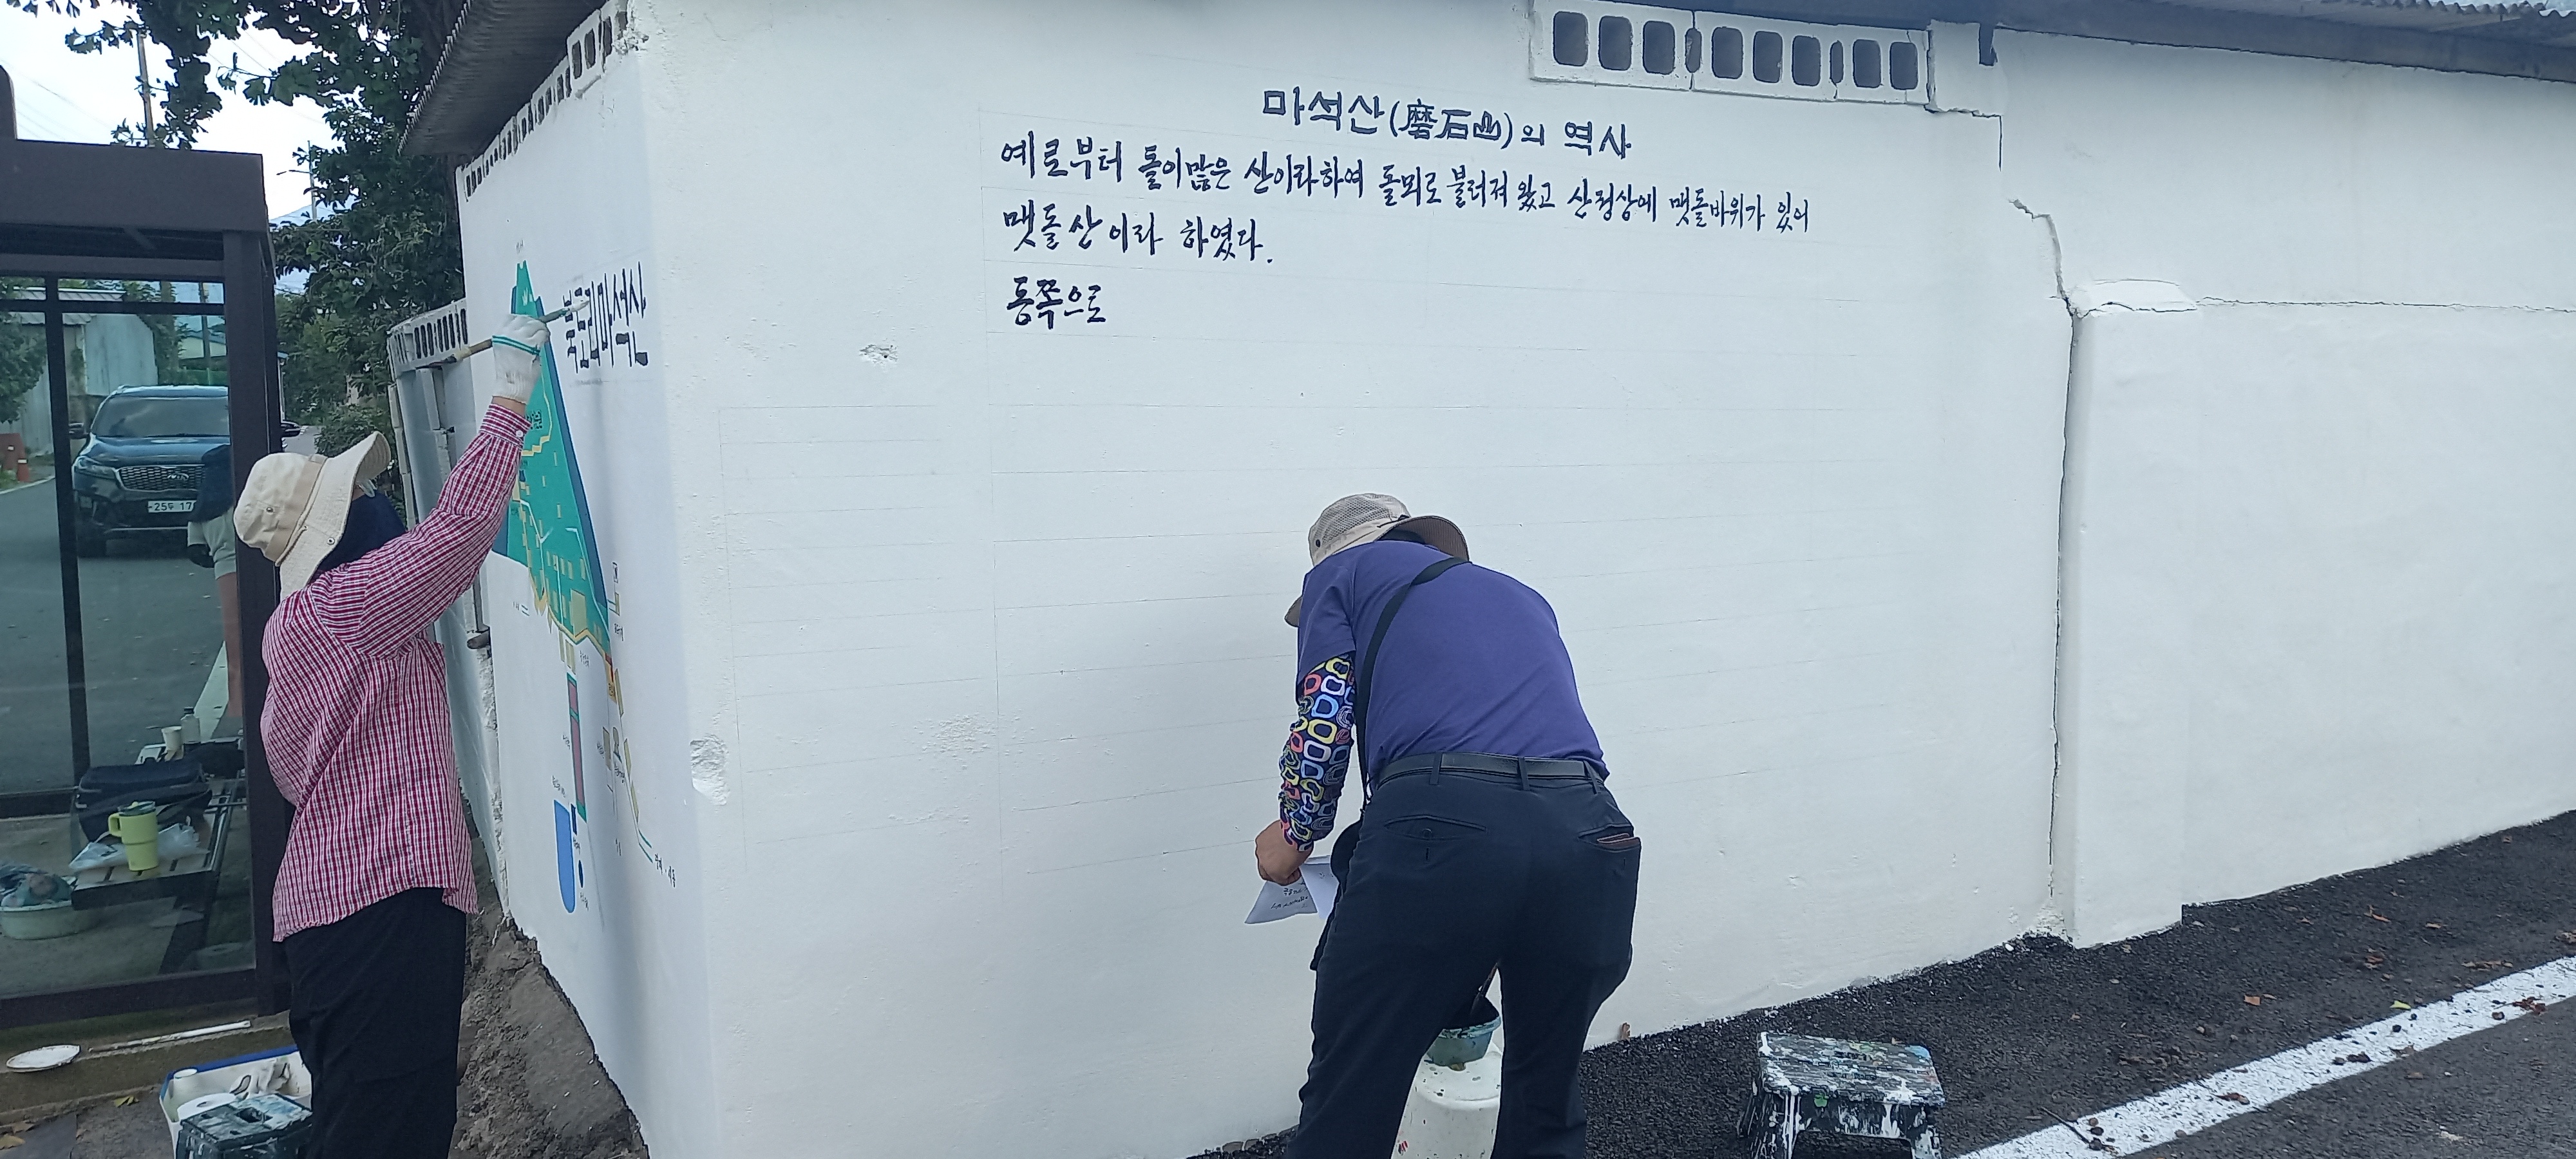 마석산(磨石山)의 역사
예로부터 돌이많은 산이라하여 돌뫼로 불러져 왔고 산정상에 맷돌바위가 있어
맷돌산이라 하였다.
동쪽으로
북토리마석산